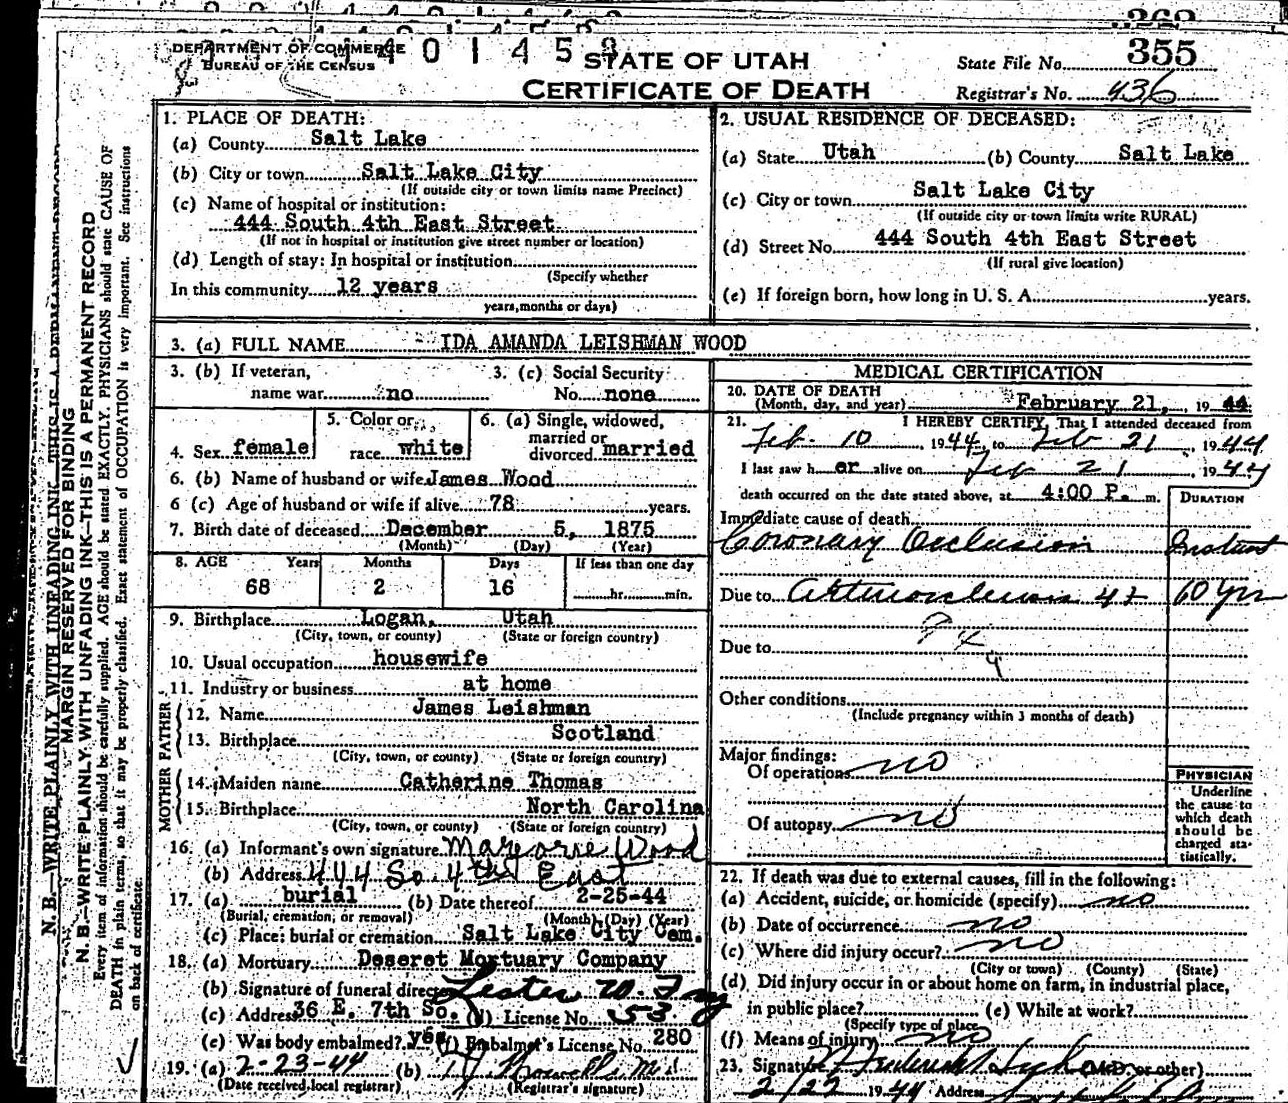 362
DEPARTMENT OF COMMERCE
BUREAU OF THE CENSUS
401458
STATE OF UTAH
CERTIFICATE OF DEATH
State File No. 355
Registrar's No. 436
1. PLACE OF DEATH:
(a) County Salt Lake
(b) City or town Salt Lake City
(If outside city or town limits name Precinct)
(c) Name of hospital or institution:
444 South 4th East Street
(If not in hospital or institution give street number or location)
(d) Length of stay: In hospital or institution
(Specify whether
In this community 12 years
years, months or days)
2. USUAL RESIDENCE OF DECEASED:
(a) State Utah (b) County Salt Lake
(c) City or town Salt Lake City
(If outside city or town limits write RURAL)
(d) Street No. 444 South 4th East Street
(If rural give location)
(e) If foreign born, how long in U. S. A. years.
3. (a) FULL NAME IDA AMANDA LEISHMAN WOOD
3. (b) If veteran, name war no
3. (c) Social Security No. none
4. Sex female
5. Color or race white
6. (a) Single, widowed, married or divorced married
6. (b) Name of husband or wife James Wood
6 (c) Age of husband or wife if alive 78 years.
7. Birth date of deceased December 5, 1875
(Month) (Day) (Year)
8. AGE Years Months Days If less than one day
68 2 16 hr. min.
9. Birthplace Logan, Utah
(City, town, or county) (State or foreign country)
10. Usual occupation housewife
11. Industry or business at home
FATHER
12. Name James Leishman
13. Birthplace Scotland
(City, town, or county) (State or foreign country)
MOTHER
14. Maiden name Catherine Thomas
15. Birthplace North Carolina
(City, town, or county) (State or foreign country)
16. (a) Informant's own signature Marjorie Wood
(b) Address 444 So. 4th East
17. (a) burial (b) Date thereof 2-25-44
(Burial, cremation, or removal) (Month) (Day) (Year)
(c) Place: burial or cremation Salt Lake City Cem.
18. (a) Mortuary Deseret Mortuary Company
(b) Signature of funeral director Lester W.
(c) Address 36 E. 7th So. (d) License No. 53
(e) Was body embalmed? yes (f) Embalmer's License No. 280
19. (a) 2-23-44 (b) M.D.
(Date received local registrar) (Registrar's signature)
MEDICAL CERTIFICATION
20. DATE OF DEATH
(Month, day, and year) February 21, 1944
21. I HEREBY CERTIFY, That I attended deceased from
Feb. 10, 1944, to Feb 21, 1944
I last saw her alive on Feb 21 1944
death occurred on the date stated above, at 4:00 P. m.
DURATION
Immediate cause of death
Coronary Occlusion Instant
Due to 10 yrs
Due to
Other conditions
(Include pregnancy within 3 months of death)
Major findings:
Of operations no
Of autopsy no
PHYSICIAN
Underline
the cause to
which death
should be
charged sta-
tistically.
22. If death was due to external causes, fill in the following:
(a) Accident, suicide, or homicide (specify) no
(b) Date of occurrence no
(c) Where did injury occur? no
(City or town) (County) (State)
(d) Did injury occur in or about home on farm, in industrial place,
in public place? (e) While at work?
(Specify type of place)
(f) Means of injury no
23. Signature (M.D. or other)
2/22 1944 Address
N. B.—WRITE PLAINLY WITH UNFADING INK—THIS IS A PERMANENT RECORD
MARGIN RESERVED FOR BINDING
N. B.—WRITE PLAINLY WITH UNFADING INK—THIS IS A PERMANENT RECORD
Every item of information should be carefully supplied. AGE should be stated EXACTLY. PHYSICIANS should state CAUSE OF
DEATH in plain terms, so that it may be properly classified. Exact statement of OCCUPATION is very important. See instructions
on back of certificate.